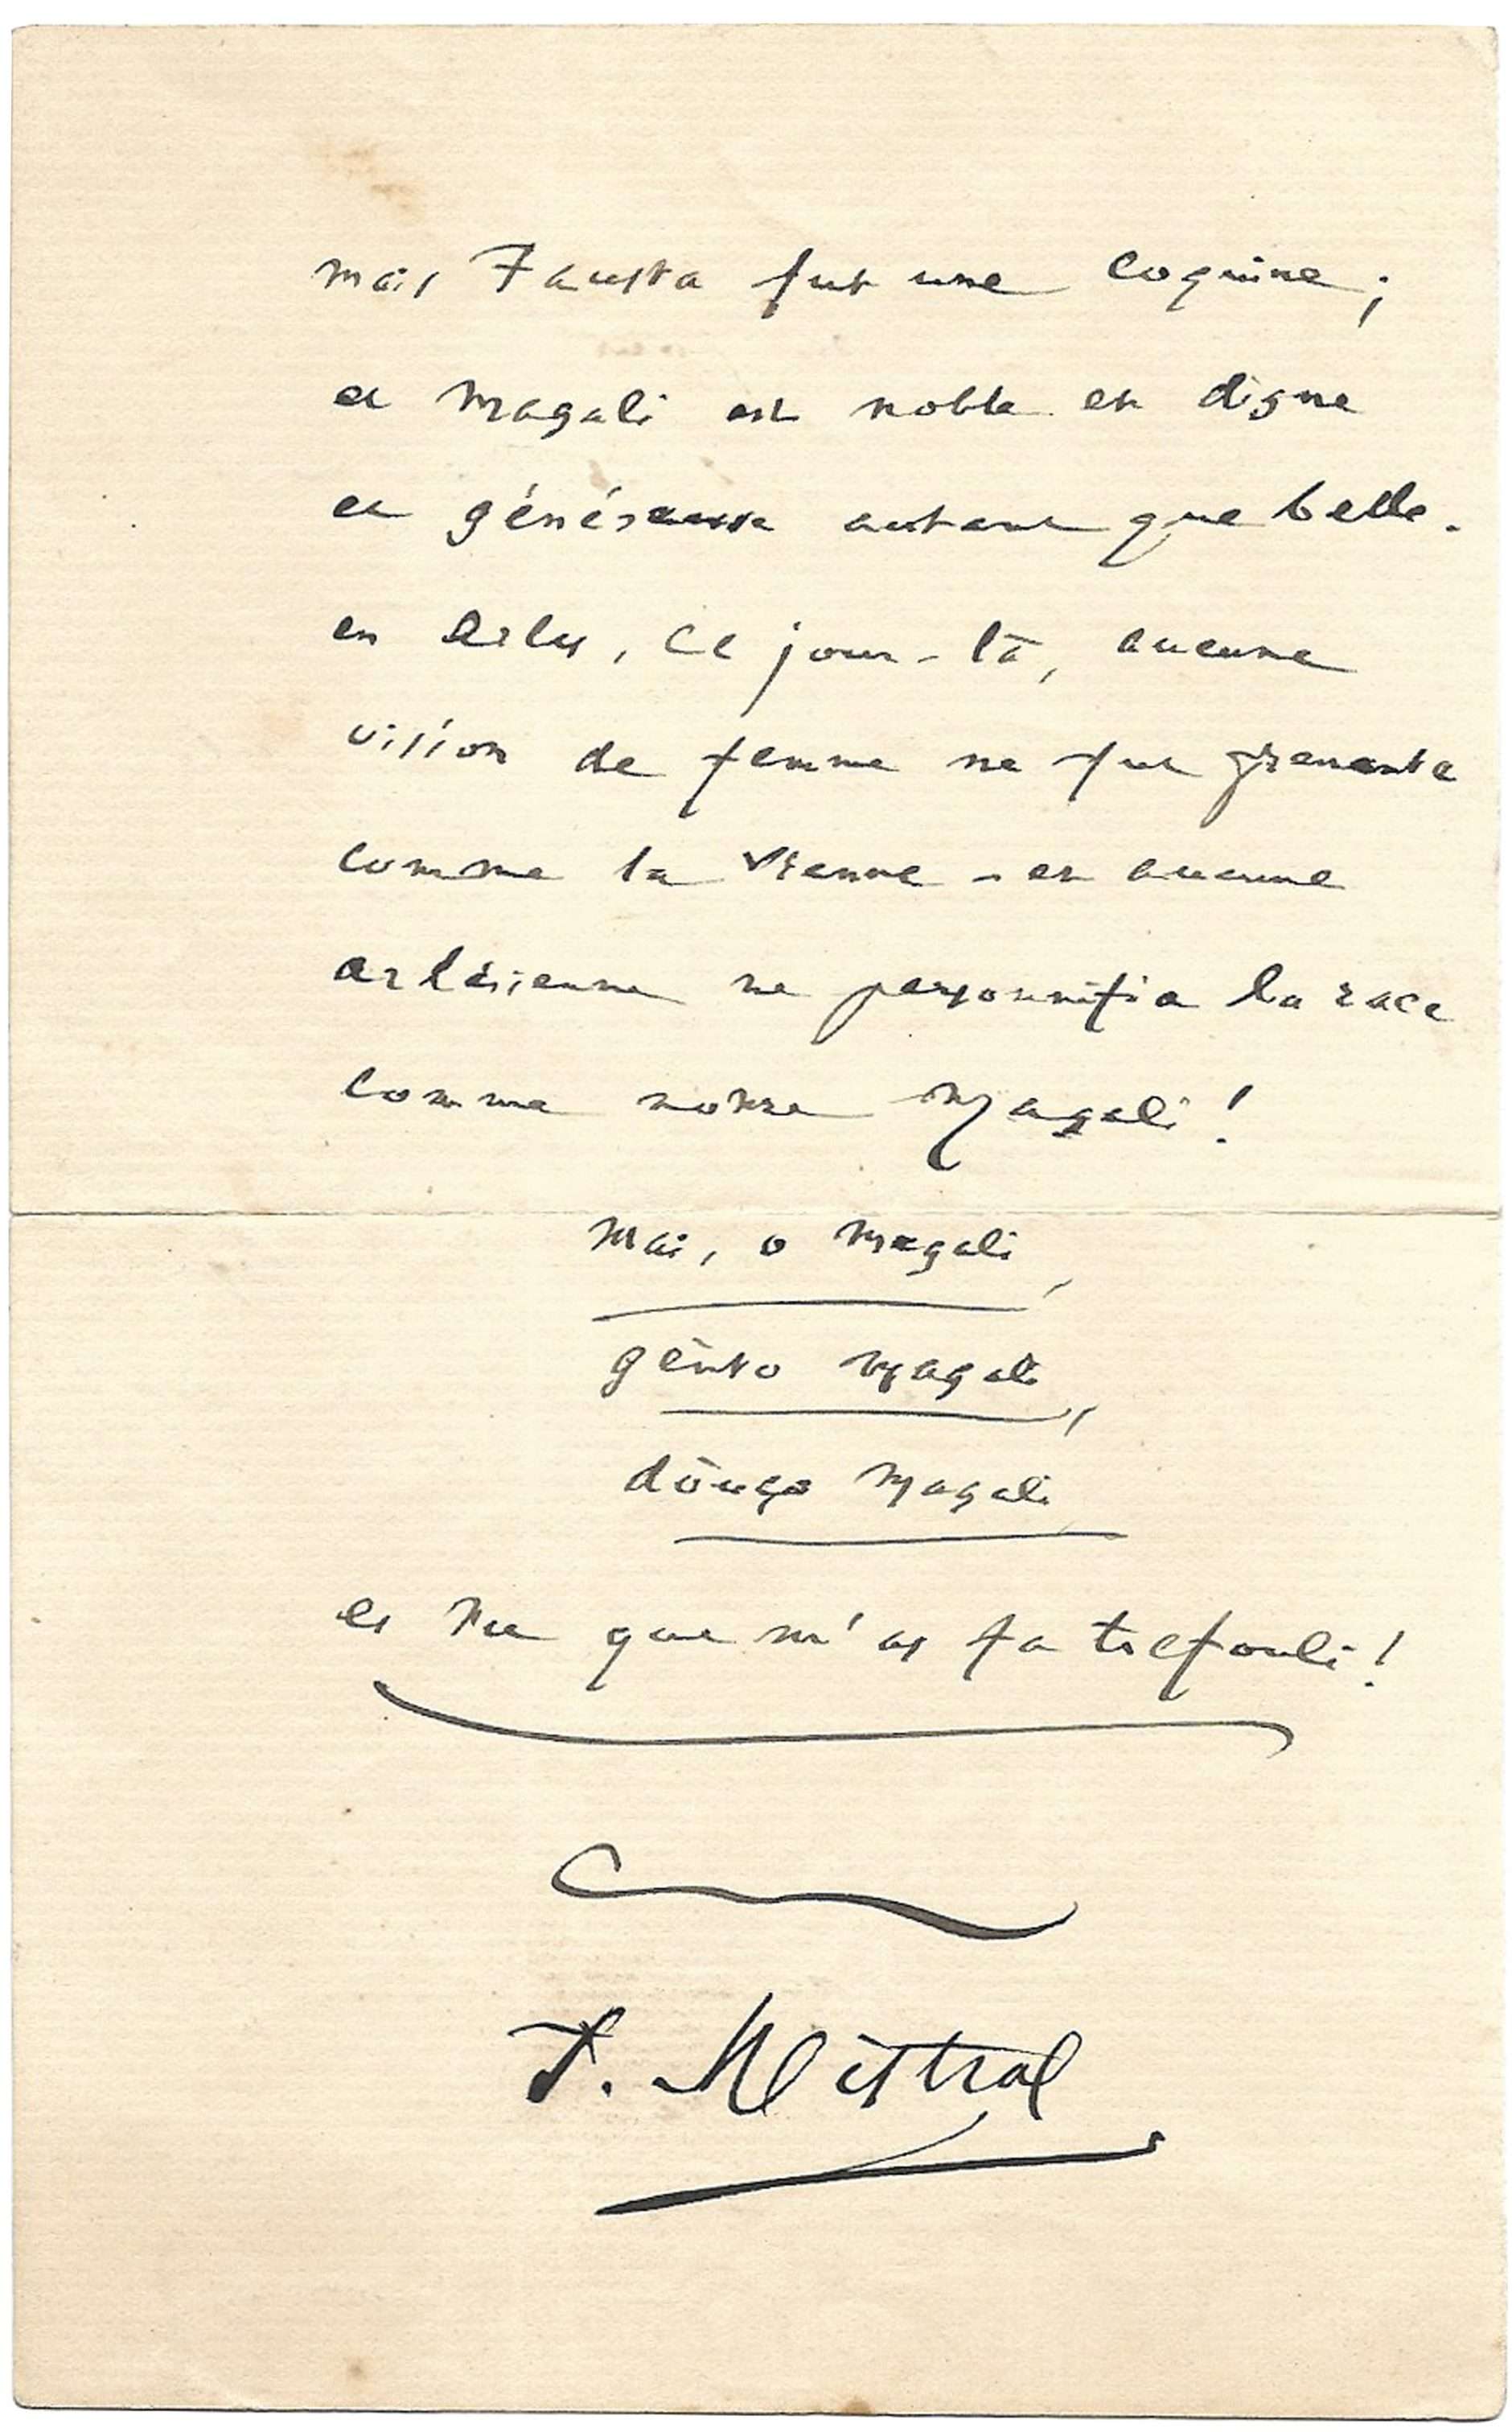 mais Fausta fut une coquine ;
et Magali est noble et digne
et généreuse autant que belle.
en Arles, ce jour-là, aucune
vision de femme ne fut prenante
comme la vienne - et aucune
arlésienne ne personnifia la race
comme notre Magali !
Mai, o Magali,
gènto Magali,
douço Magali
es tu que m'as fa trefouli !
F. Mistral